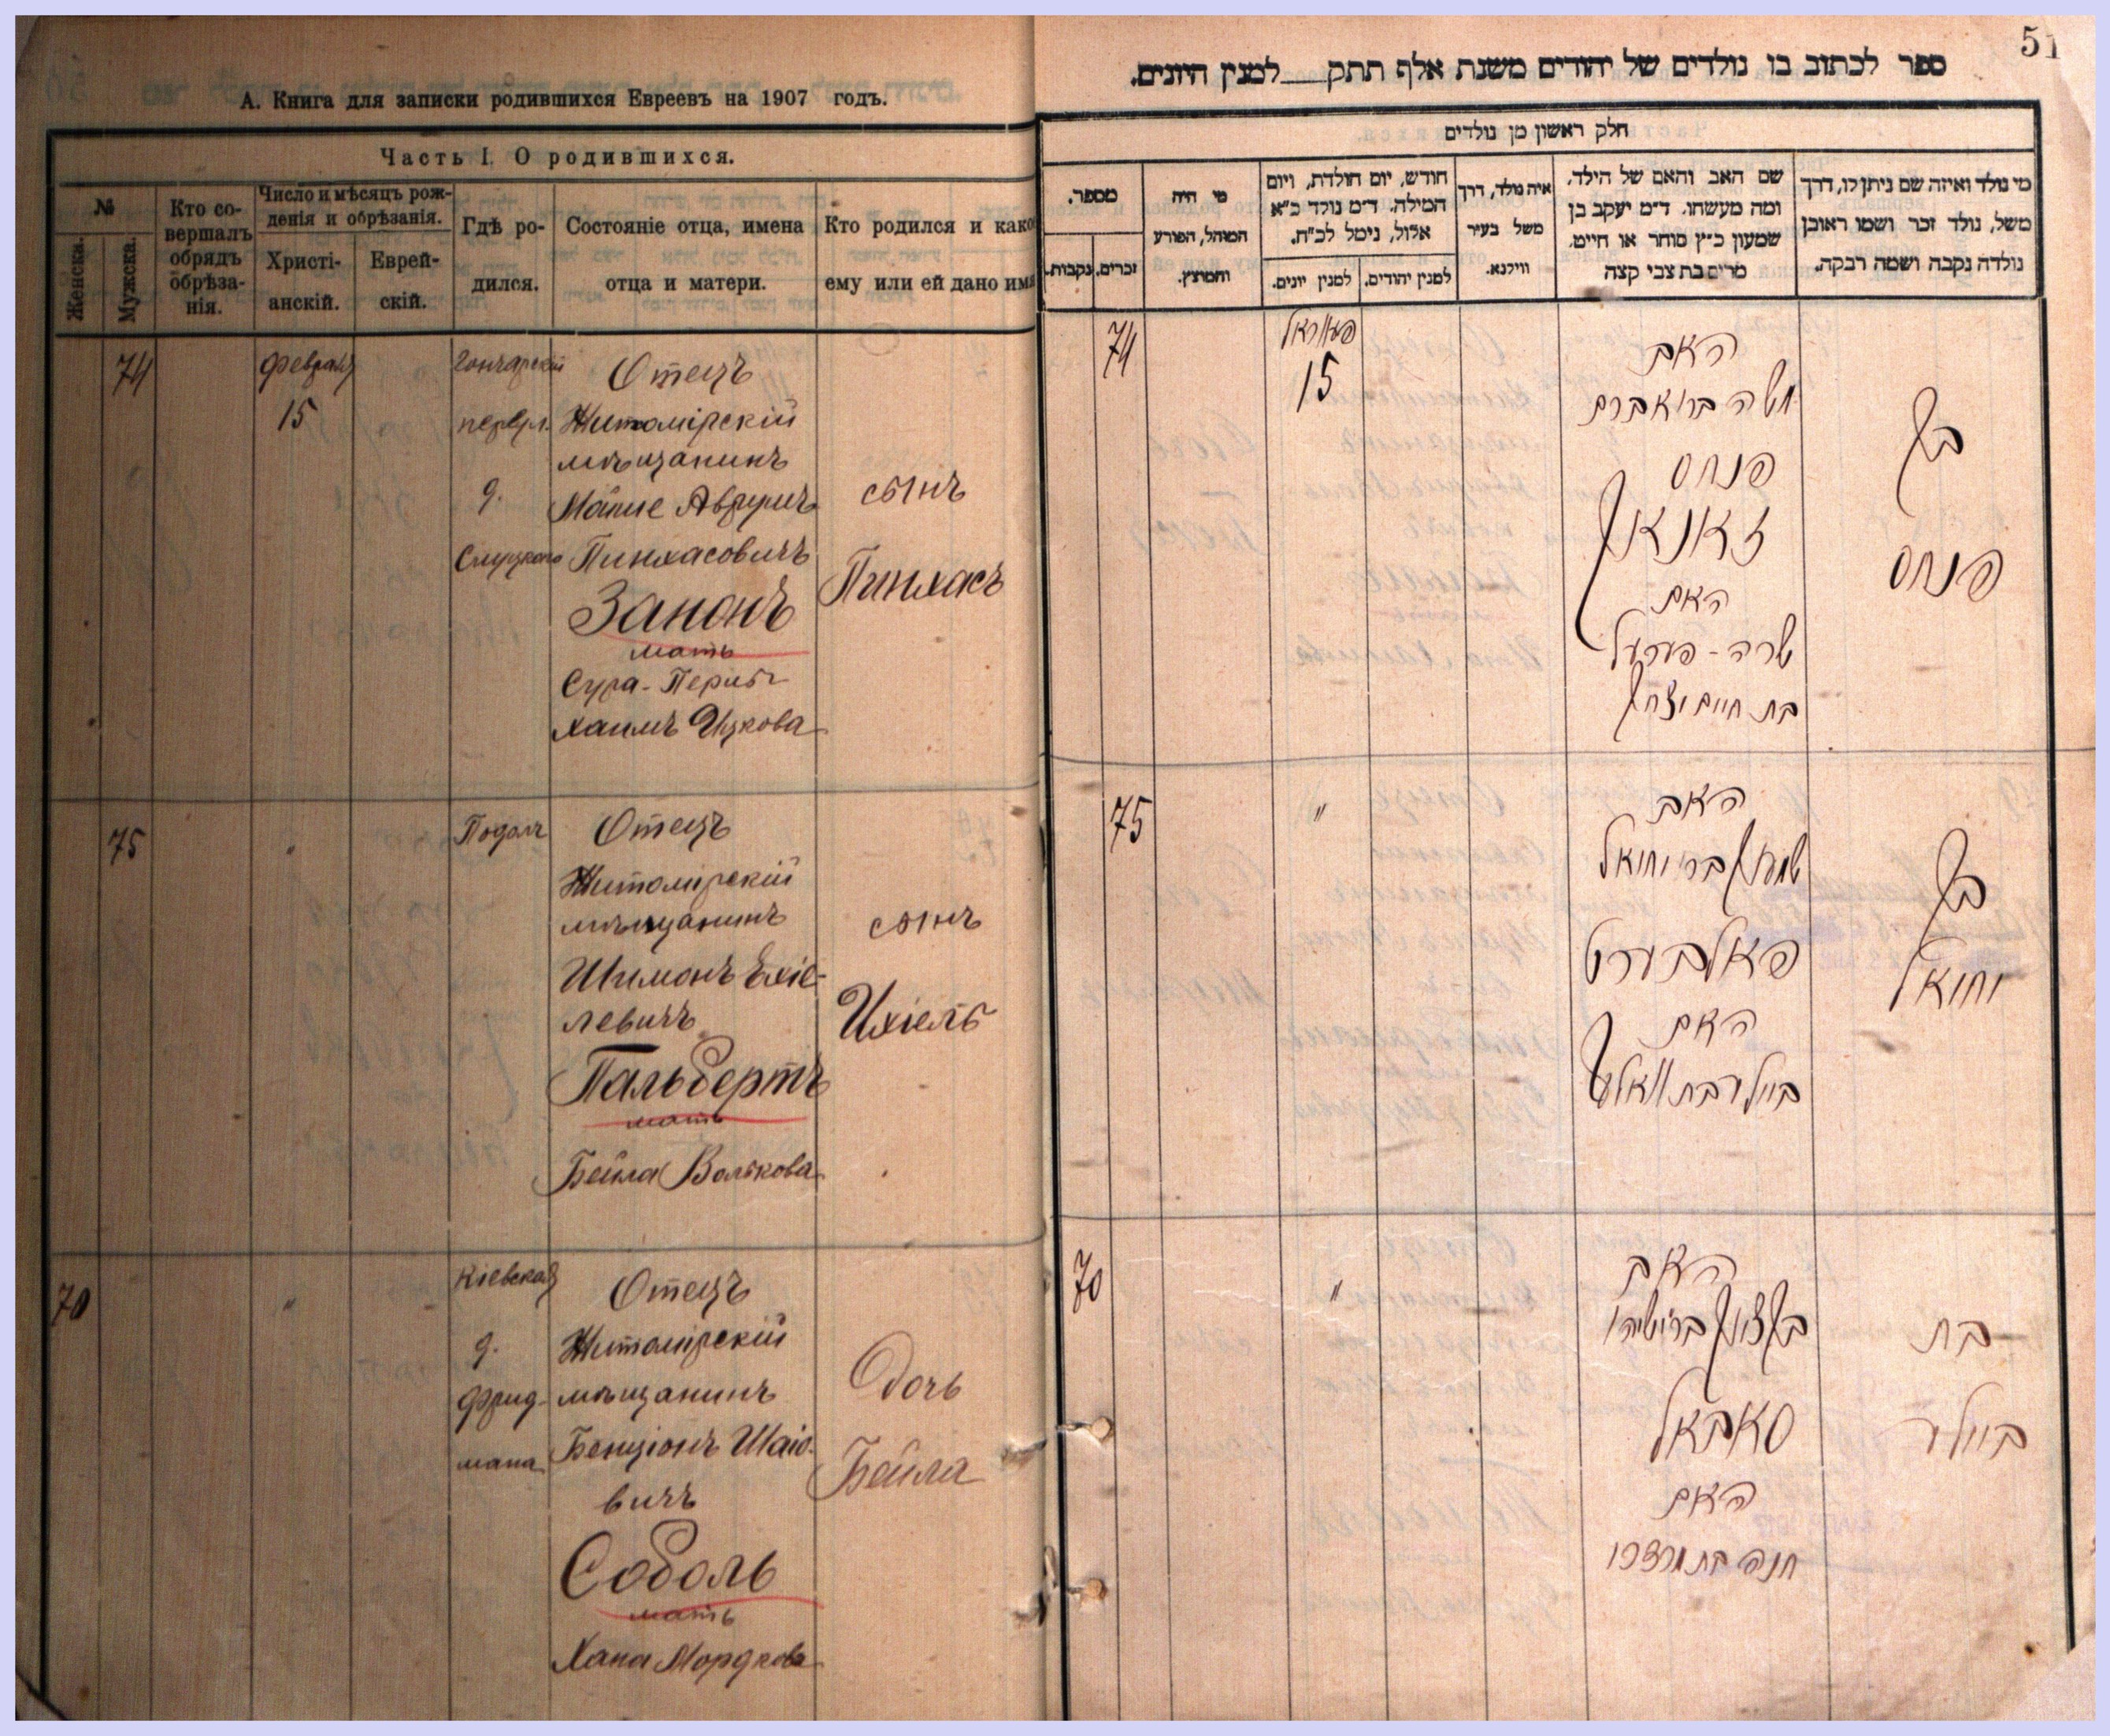 А. Книга для записки родившихся Евреевъ на 1907 годъ.
Часть I. О родившихся.
№
Женска.
Мужска.
Кто со-
вершалъ
обрядъ
обрѣза-
нія.
Число и мѣсяцъ рож-
денія и обрѣзанія.
Христі-
анскій.
Еврей-
скій.
Гдѣ ро-
дился.
Состояніе отца, имена
отца и матери.
Кто родился и како
ему или ей дано имя
74
Февраля
15
Гончарскій
переул.
д.
Слуцкого
Отецъ
Житомірскій
мѣщанинъ
Мойше Аврумъ
Пинхасовичъ
Занонъ
мать
Сура-Перыль
Хаимъ Ицкова
сынъ
Пинхасъ
75
"
Подолъ
Отецъ
Житомірскій
мѣщанинъ
Шимонъ Ехіе-
левичъ
Пальбертъ
мать
Бейла Волькова
сынъ
Ихіель
70
"
Кіевская
д.
Фрид-
мана
Отецъ
Житомірскій
мѣщанинъ
Бенціонъ Шаіо-
вичъ
Соболь
мать
Хана Мордкова
Дочь
Бейла
51
ספר לכתוב בו נולדים של יהודים משנת אלף תתק למנין היונים.
חלק ראשון מן נולדים
מי נולד ואיזה שם ניתן לו, דרך
משל, נולד זכר ושמו ראובן
נולדה נקבה ושמה רבקה.
שם האב והאם של הילד,
ומה מעשהו. ד״מ יעקב בן
שמעון כ״ץ סוחר או חייט,
מרים בת צבי קצה
איה נולד, דרך
משל בעיר
ווילנא.
חודש, יום הולדת, ויום
המילה. ד״מ נולד כ״א
אלול, נימל לכ״ח.
למנין יהודים.
למנין יונים.
מי היה
המוהל, הפורע
והמוצץ.
מספר.
זכרים.
נקבות.
74
פעוראל
15
האב
משה אברהם
פנחס
זאנאן
האם
שרה-פערעל
בת חיים יצחק
בן
פנחס
75
"
האב
שמעון בר יחיאל
פאלבערט
האם
ביילא בת וואלף
בן
יחיאל
70
"
האב
בן ציון בר ישעיהו
סאבאל
האם
חנה בת מרדכי
בת
ביילא